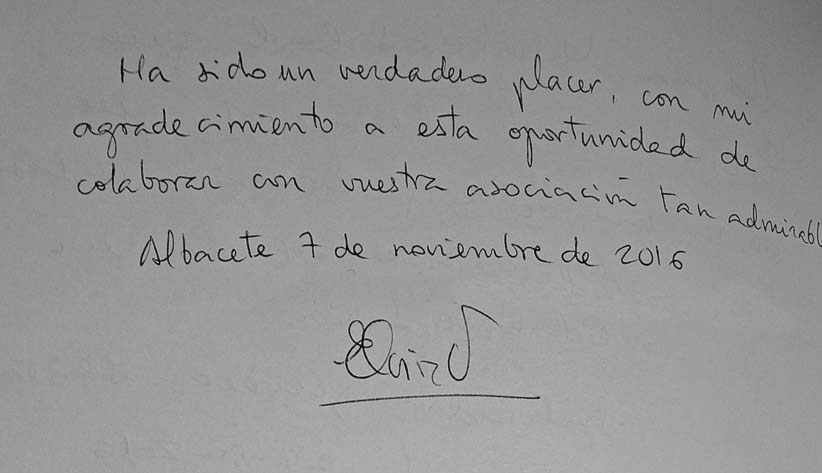 Ha sido un verdadero placer, con mi
agradecimiento a esta oportunidad de
colaborar con vuestra asociación tan admirabl
Albacete 7 de noviembre de 2016